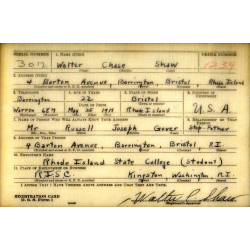 SERIAL NUMBER 1. NAME (Print) ORDER NUMBER
3012 Walter Chase Shaw 1234
2. ADDRESS (Print)
4 Barton Avenue, Barrington, Bristol Rhode Island
3. TELEPHONE 4. AGE IN YEARS 5. PLACE OF BIRTH 6. COUNTRY OF CITIZENSHIP
Barrington 22 Bristol
Warren May 25 1918 Rhode Island U.S.A.
7. NAME OF PERSON WHO WILL ALWAYS KNOW YOUR ADDRESS 8. RELATIONSHIP OF THAT PERSON
Mr Russell Joseph Step-Father
9. ADDRESS OF THAT PERSON
4 Barton Avenue Barrington, Bristol, R.I.
10. EMPLOYER'S NAME
Rhode Island State College (Student)
11. PLACE OF EMPLOYMENT OR BUSINESS
R.I.S.C. Kingston Washington, R.I.
I AFFIRM THAT I HAVE VERIFIED ABOVE ANSWERS AND THAT THEY ARE TRUE.
REGISTRATION CARD
D. S. S. Form 1
Walter C Shaw